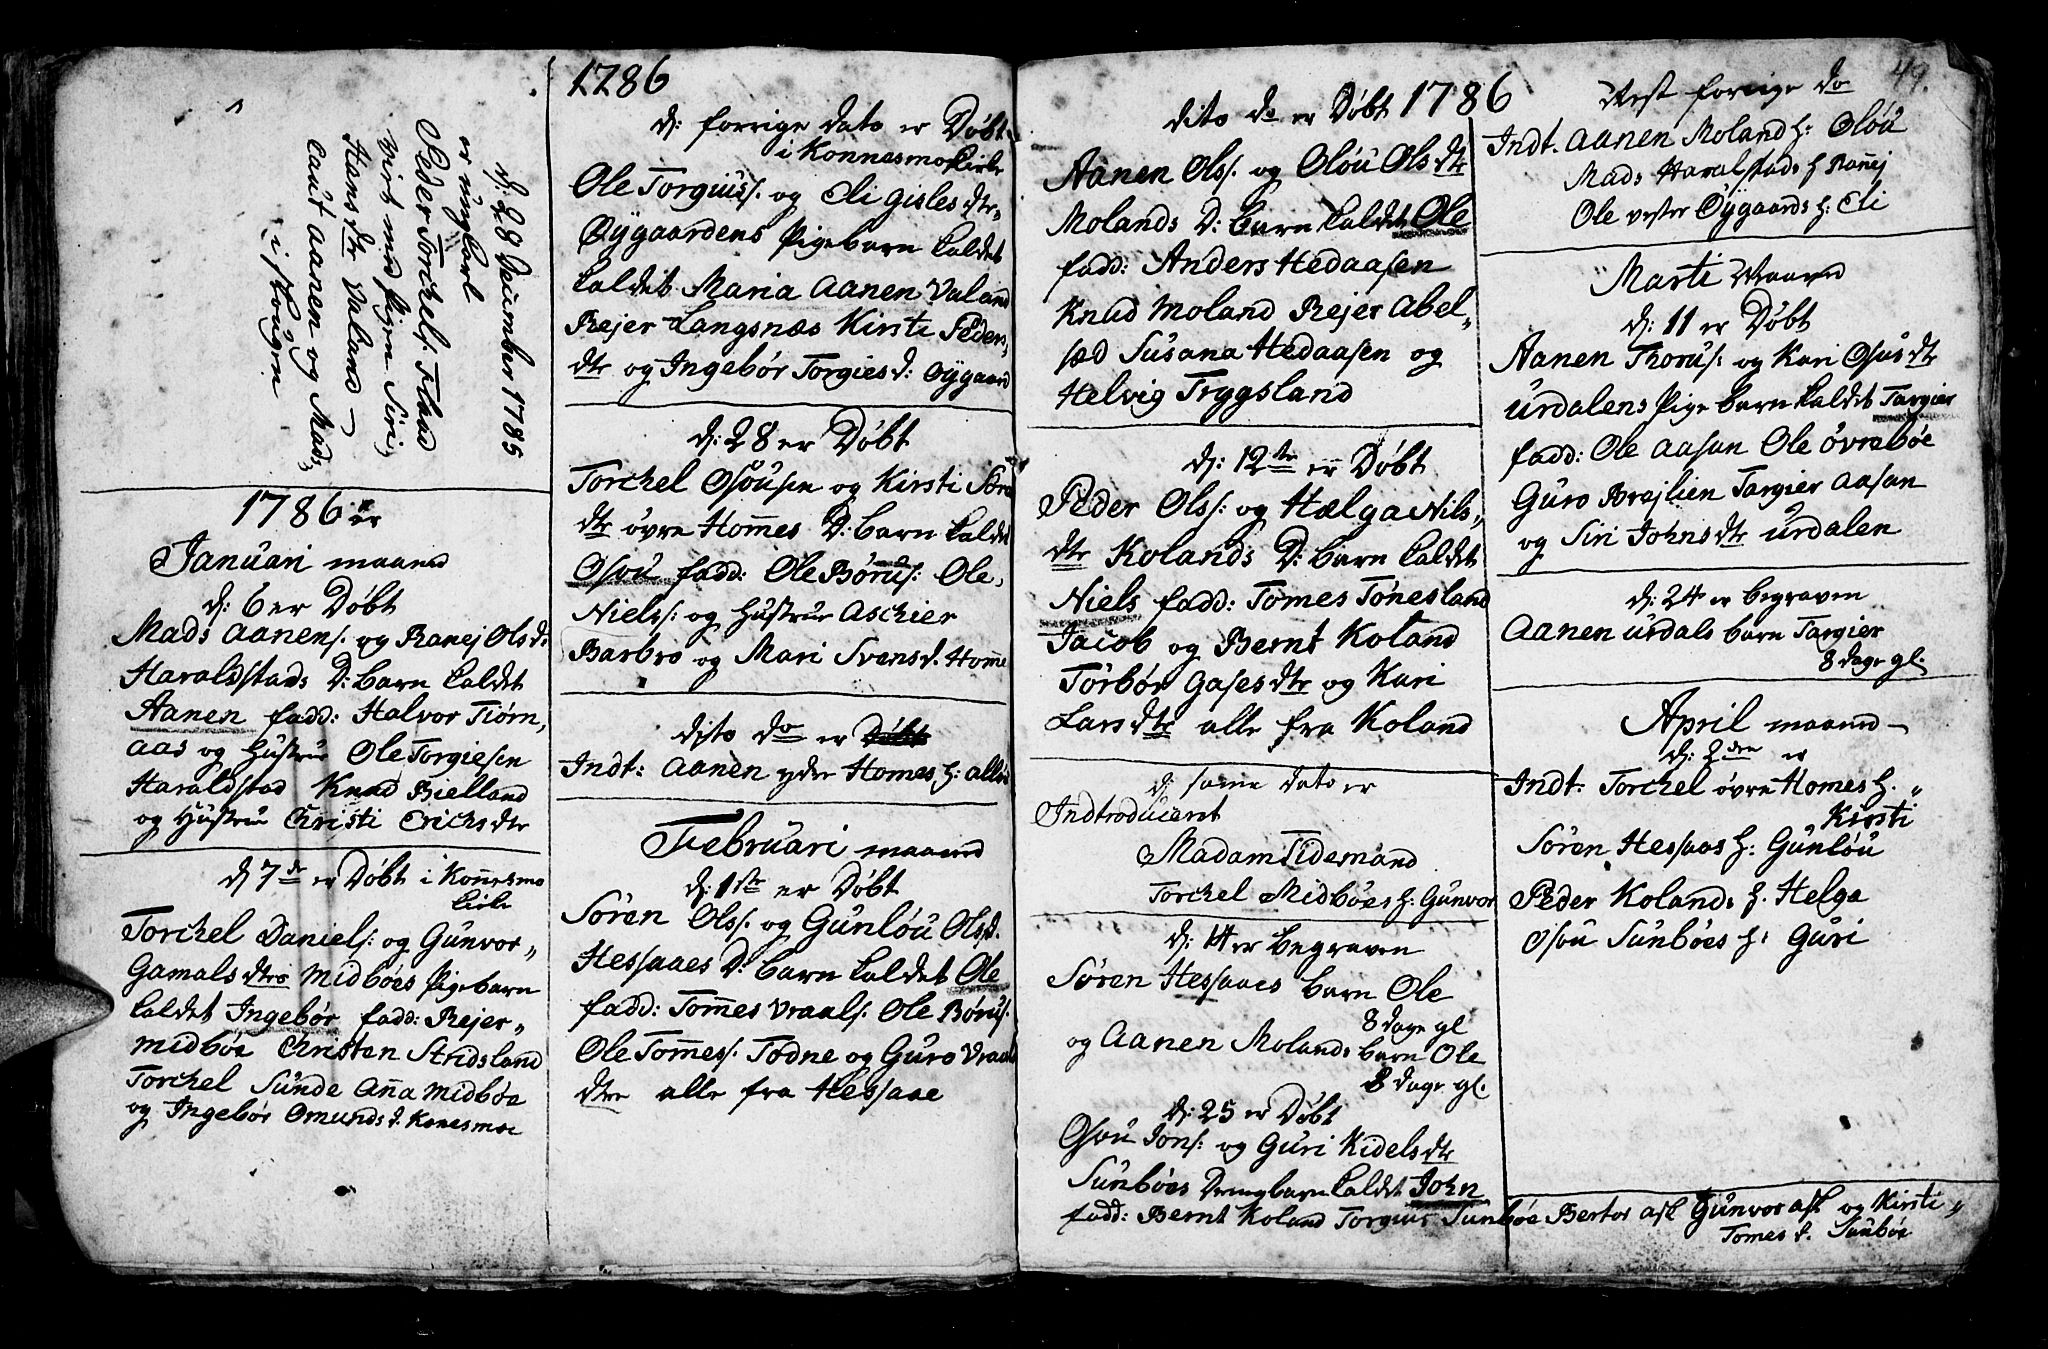 d: 28 December 1785
er ungkarl
Peder Torchels: Flaad
virt med pigen Siri
Hansdtr Valand
caut Aanen og Mads
i skougen
1786 er
Januari maaned
d: 6 er Døbt
Mads Aanens: og Ranej Olsdr
Haraldstads D: barn kaldet
Aanen fadd: Halvor Tiørn,
aas og Hustrue Ole Torgiesen
Haraldstad Knud Bielland
og Hustrue Christi Erichsdtr
d 7de er Døbt i Konnesmo
kirke
Torchel Daniels: og Gunvor„
Gamalsdtrs Midbøes Pigebarn
kaldet Ingebør fadd: Rejer„
midbøe Christen Stridsland
Torchel Sunde Anna midbøe
og Ingebør Omundsd. Konesmoe
1786
d: forrige dato er Døbt
i Konnesmo kirke
Ole Torgius: og Eli Gislesdtr„
Øÿgaardens Pigebarn kaldet
kaldet Maria Aanen Valand
Rejer Langsnæs Kirsti Peders„
dtr og Ingebør Torgiesd: Øÿgaard
d: 28 er Døbt
Torchel Osousen og Kirsti Søre
dtr øvre Hommes D: barn kaldet
Osou fadd: Ole Børus: Ole,
Niels: og Hustrue Aschier
Barbro og Mari Svensd. Homme
dito do er Døbt
Indt: Aanen ydre Homes h: Allis
Februari maaned
d: 1ste er Døbt
Søren Ols: og Gunløu Olsd.
Hessaaes D: barn kaldet Ole
fadd: Tommes Vraals: Ole Børus:
Ole Tommes: Todne og Guro Vraals
dtre alle fra Hessaae
dito do er Døbt 1786
Aanen Ols: og Oløu Olsdtr
Molands D: barn kaldet Ole
fadd: Anders Hedaasen
Knud Moland Rejer Abel„
sæd Susana Hedaasen og
Helvig Tryggsland
d: 12te er Døbt
Peder Ols: og Hælga Nils„
dtr Kolands D: barn kaldet
Niels fadd: Tomes Tønesland
Jacob og Bernt Koland
Torbør Gasesdtr og Kari
Larsdtr alle fra Koland
d: same dato er
Indtroduceret
Madam Tidemand
Torchel Midbøes h: Gunvor
d: 14 er begraven
Søren Hessaaes barn Ole
8 dage gl
og Aanen Molands barn Ole
8 dage gl.
d: 25 er Døbt
Osou Jons: og Guri Kidelsdtr
Sunbøes Drengbarn kaldet John
fadd: Bernt Koland Torgius Sunbøe Bertor Ask Gunvor Ask og Kirsti„
Tomesd. Sunbøe
49.
Rest forrige do
Indt. Aanen Moland h: Oløu
Mads Haralstads h Ranej
Ole vester Øÿgaards h: Eli
Marti Maaned
d: 11 er Døbt
Aanen Thorus: og Kari Osusdtr
Urdalens Pige barn kaldet Targier
fadd: Ole Aasan Ole øvrebøe
Guro Brejlien Targier Aasan
og Siri Johnsdtr Urdalen
d: 24 er begraven
Aanen Urdals barn Targier
8 dage gl.
April maaned
d: 2den er
Indt: Torchel øvre Homes h. „
Kirsti
Søren Hessaaes h: Gunløu
Peder Kolands h. Helga
Osou Sunbøes h: Guri